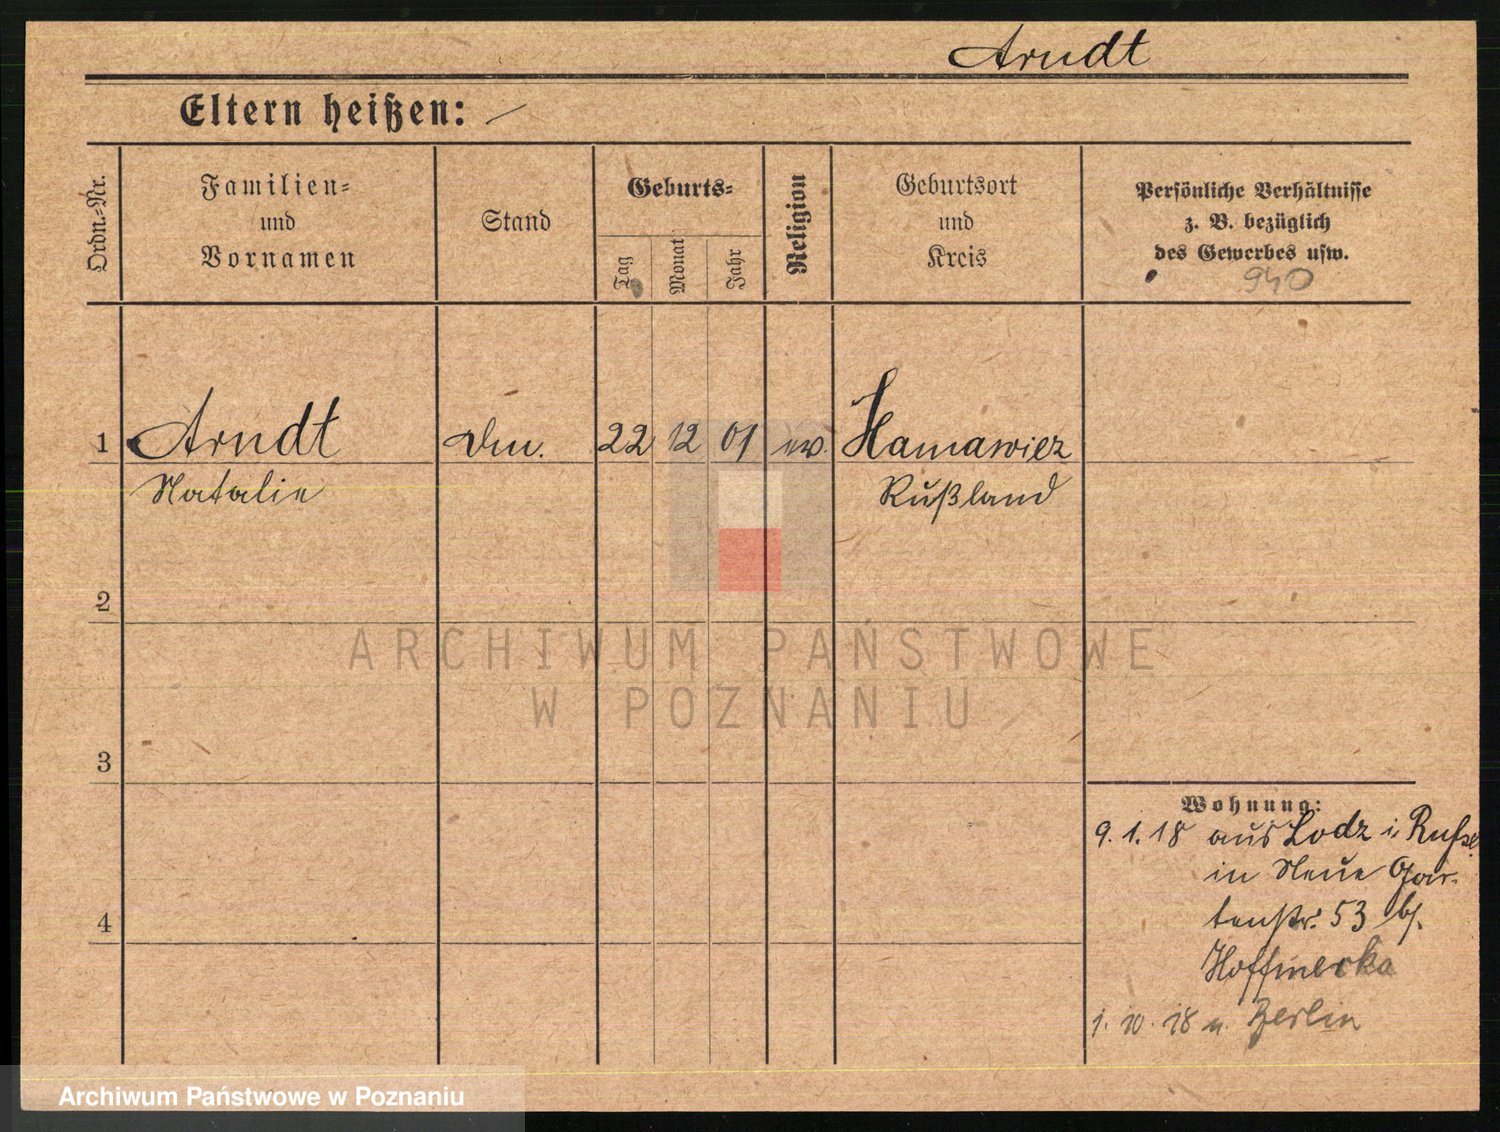 Arndt
Eltern heißen: —
Ordn.-Nr.
Familien-
und
Vornamen
Stand
Geburts-
Tag
Monat
Jahr
Religion
Geburtsort
und
Kreis
Persönliche Verhältnisse
z. B. bezüglich
des Gewerbes usw.
940
1 Arndt 22 12 01 ev. Hamawiez
Natalie Rußland
2
3
4
Wohnung:
9.1.18 aus Lodz i. Rußl.
in Neue Gar-
tenstr. 53 bf.
1.10.18 n. Berlin
ARCHIWUM PAŃSTWOWE
W POZNANIU
Archiwum Państwowe w Poznaniu